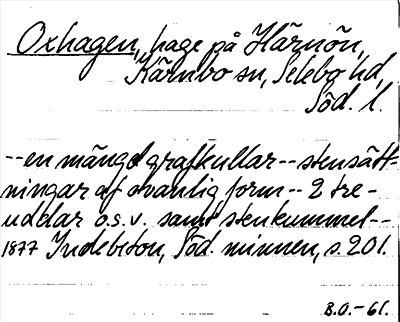 Oxhagen, hage på Härnön,
Kärnbo sn, Selebo hd,
Söd. l.
--en mängd grafkullar--stensätt-
ningar af ovanlig form--2 tre-
uddar o.s.v. samt stenkummel--
1877 Indebetou, Söd. minnen, s. 201.
B.O.-61.